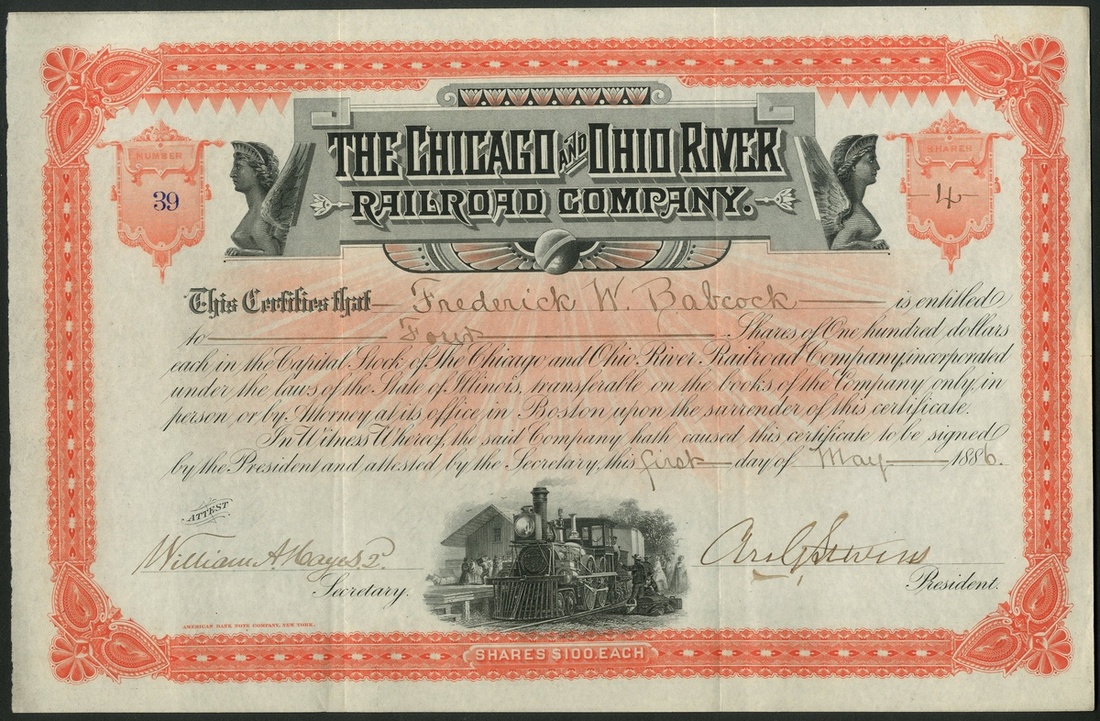 THE CHICAGO AND OHIO RIVER
RAILROAD COMPANY.
NUMBER
39
SHARES
4
This Certifies that Frederick W. Babcock is entitled
to Four Shares of One hundred dollars
each in the Capital Stock of the Chicago and Ohio River Railroad Company, incorporated
under the laws of the State of Illinois, transferable on the books of the Company only, in
person or by Attorney at its office in Boston upon the surrender of this certificate.
In Witness Whereof, the said Company hath caused this certificate to be signed
by the President and attested by the Secretary, this first day of May 1886.
ATTEST
William A. Hayes 2d.
Secretary.
President.
AMERICAN BANK NOTE COMPANY, NEW YORK.
SHARES $100. EACH